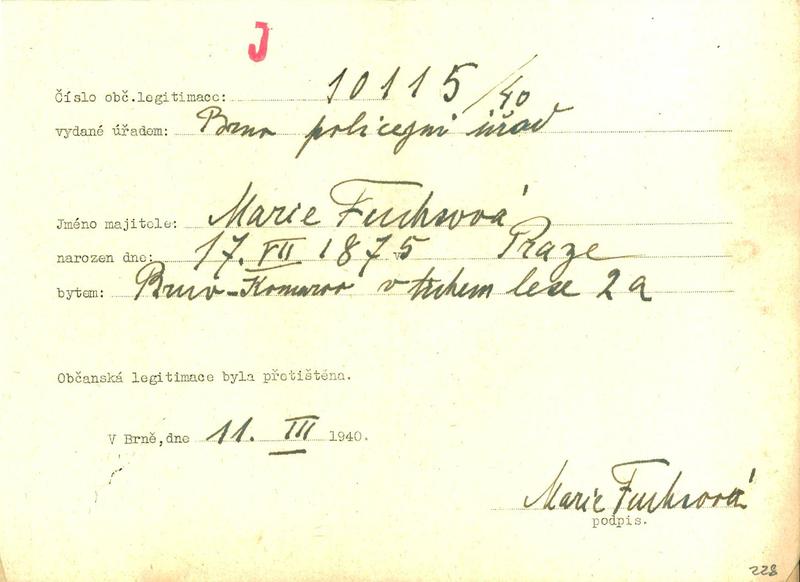 J
Číslo obč.legitimace: 10115/40
vydané úřadem: Brno policejni úřad
Jméno majitele: Marie Fuchsová
narozen dne: 17. VII 1875 v Praze
bytem: Brno-Komarov v tichem lese 2a
Občanská legitimace byla přetištěna.
V Brně,dne 11. III 1940.
Marie Fuchsová
podpis.
228